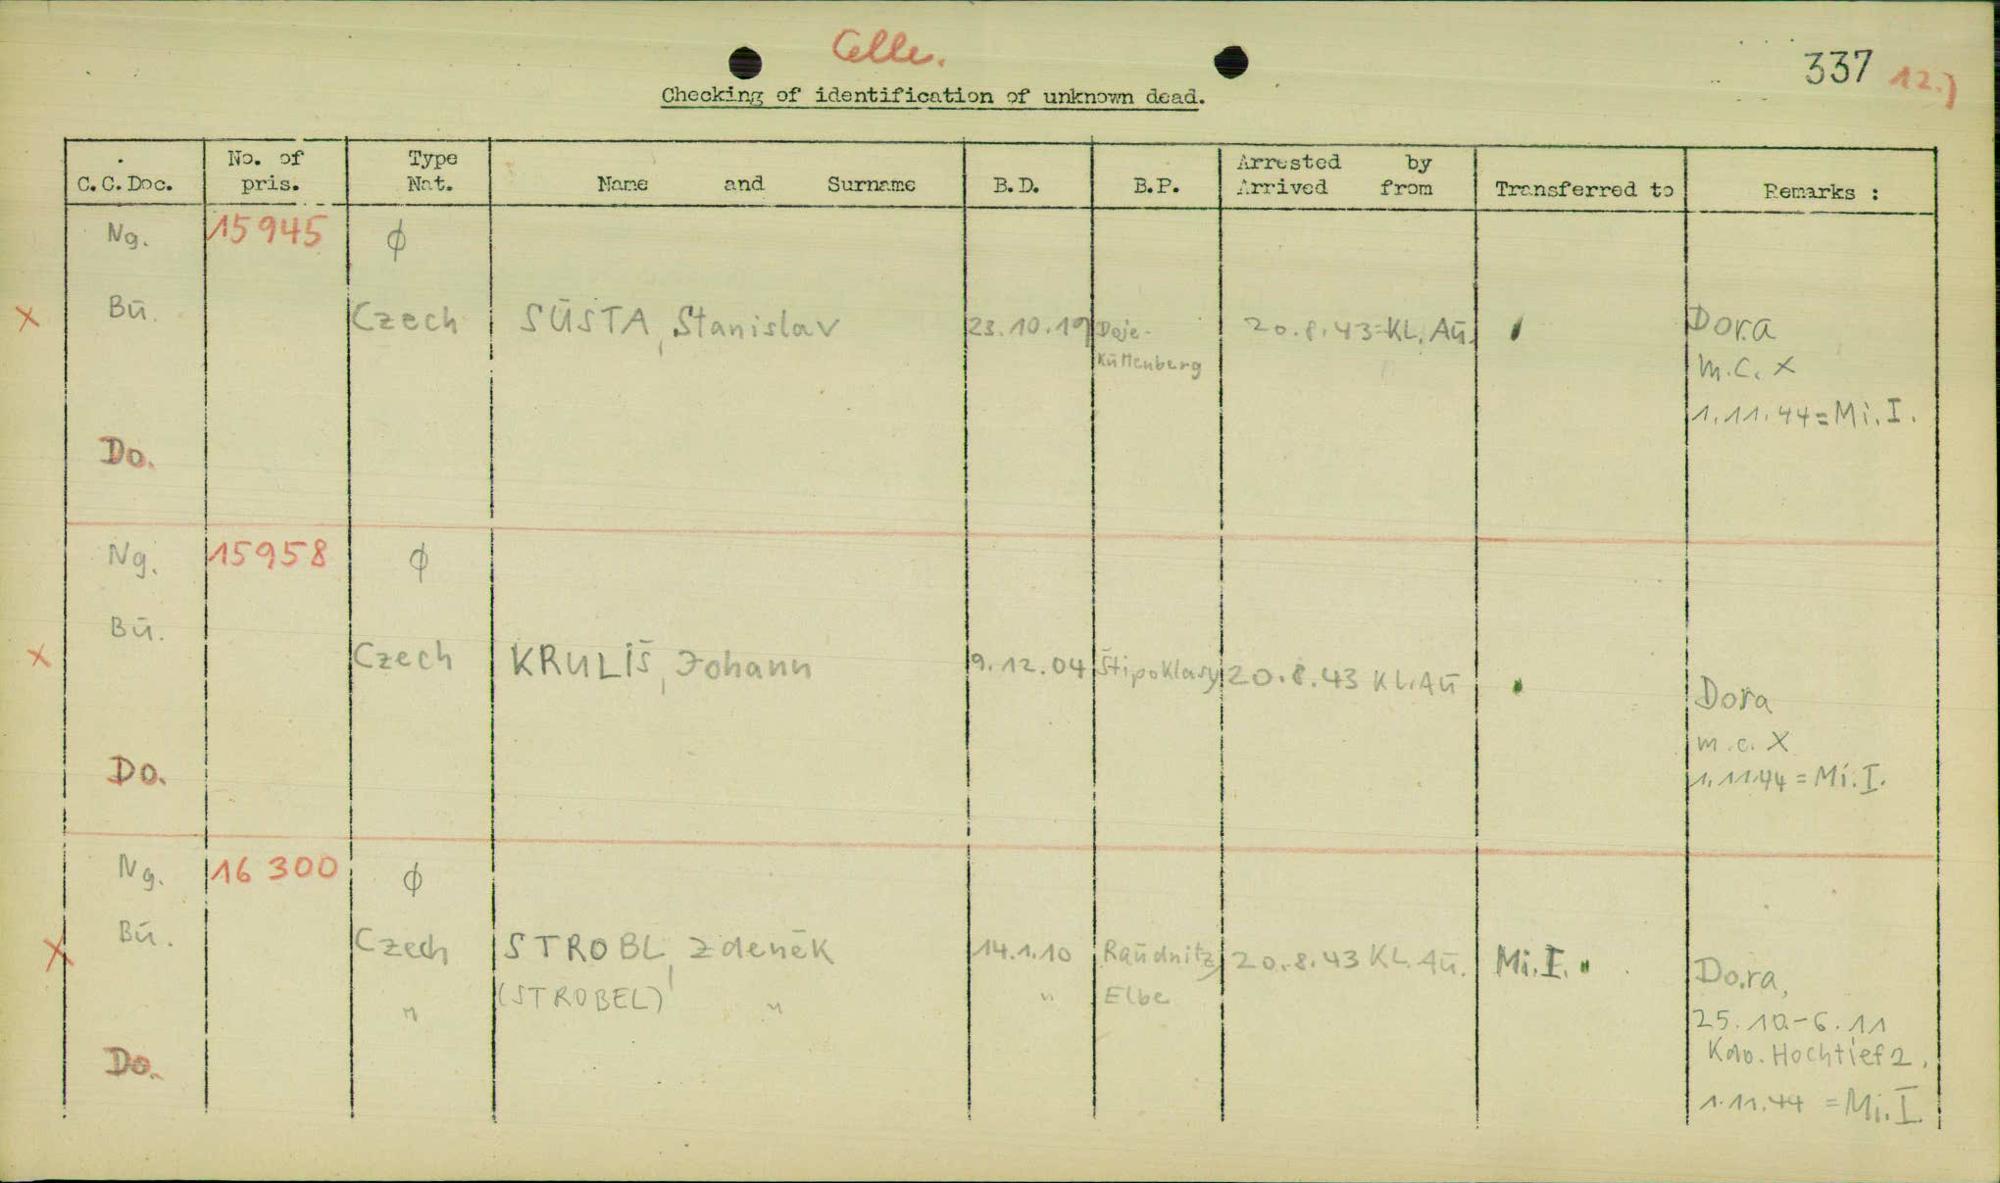 Celle.
337 12.)
Checking of identification of unknown dead.
C.C.Doc. No. of pris. Type Nat. Name and Surname B.D. B.P. Arrested by Arrived from Transferred to Remarks :
Ng. 15945 ϕ
x Bū. Czech SŪSTA, Stanislav 23.10.19 Doje- 20.8.43=KL.Aū. Dora
Kūttenberg m.c. x
1.11.44=Mi.I.
Do.
Ng. 15958 ϕ
Bū.
x Czech KRULIŠ, Johann 9.12.04 Štipoklasy 20.8.43 KL.Aū Dora
m.c. X
Do. 1.11.44 = Mi.I.
Ng. 16 300 ϕ
x Bū. Czech STROBL, Zdenĕk 14.1.10 Raūdnitz 20.8.43 KL.Aū. Mi.I. Dora,
" (STROBEL) " " Elbe 25.10-6.11
Kdo. Hochtief 2.
Do. 1.11.44 = Mi.I.